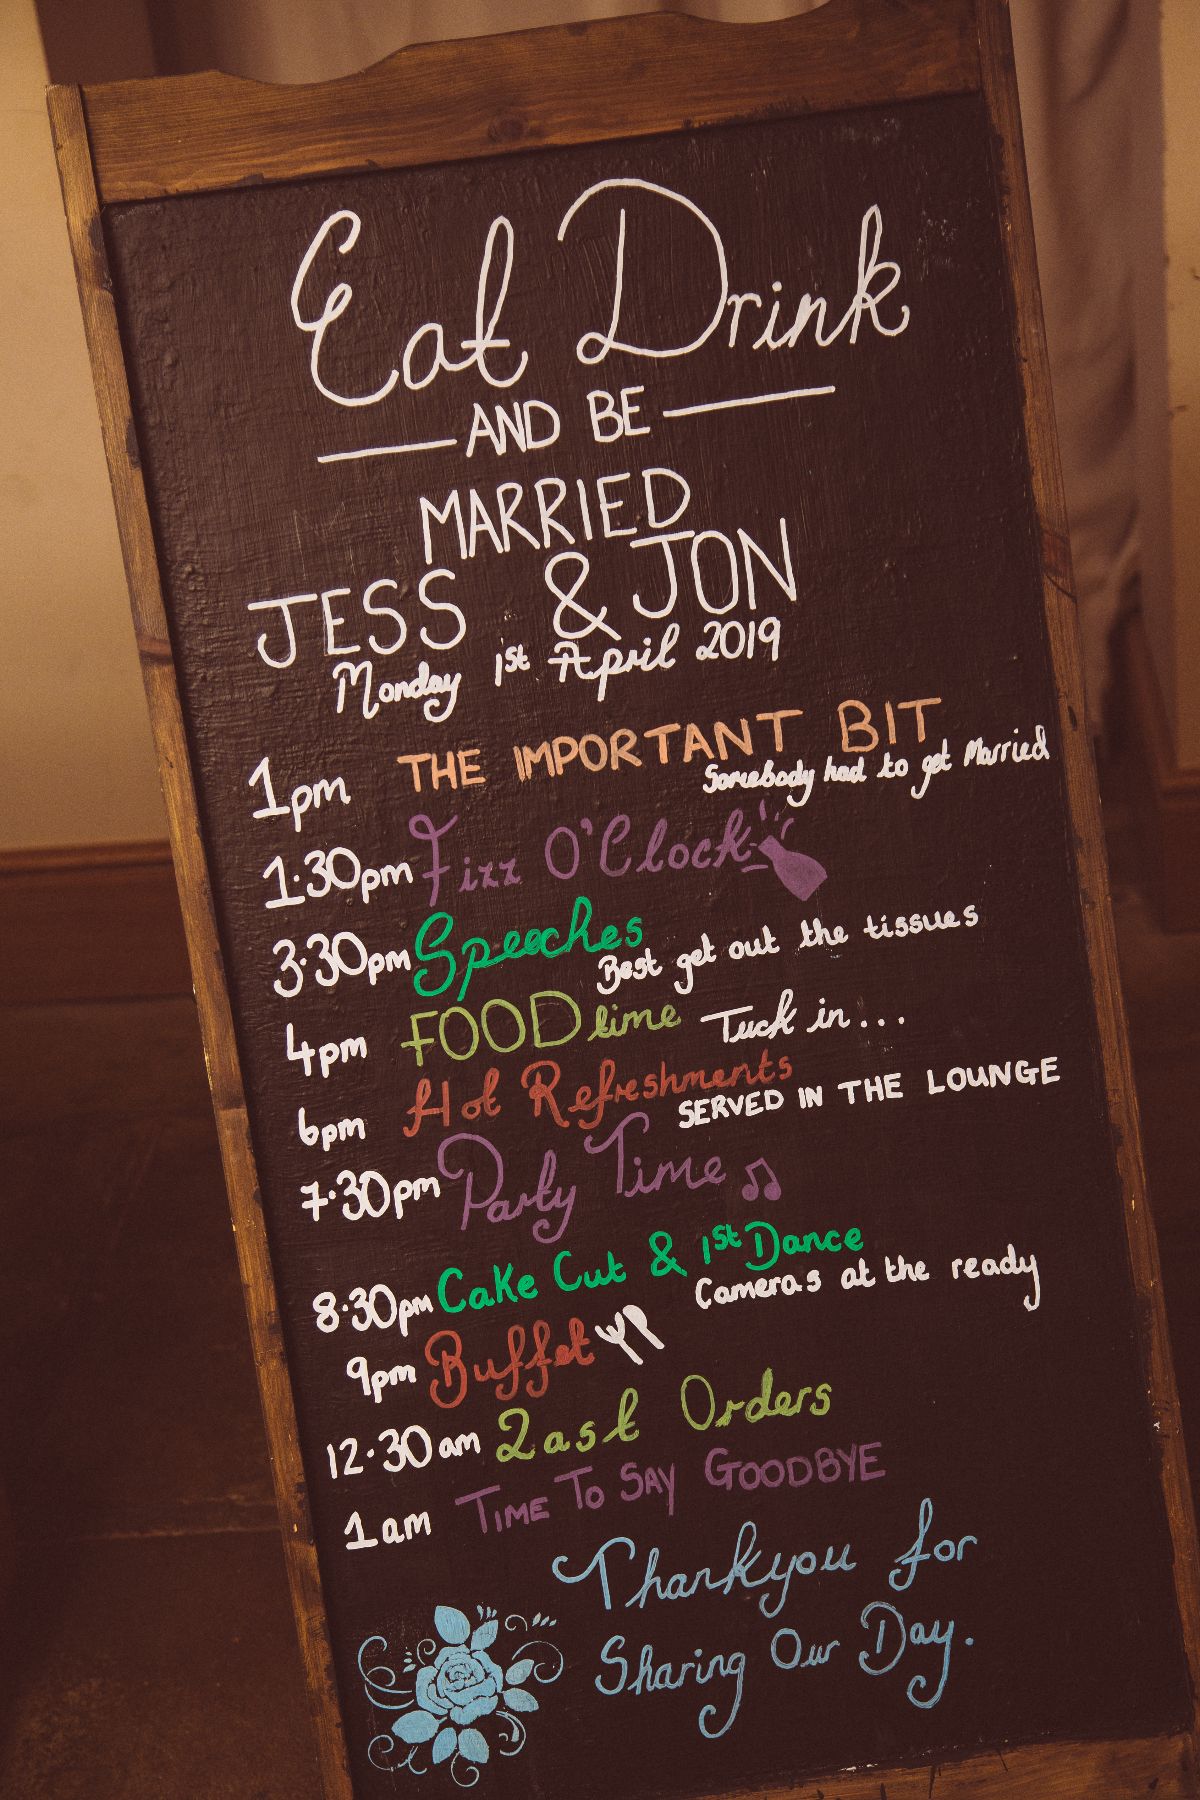 Eat Drink
AND BE
MARRIED
JESS & JON
Monday 1st April 2019
1pm THE IMPORTANT BIT
Somebody had to get Married
1.30pm Fizz O'Clock
3.30pm Speeches
Best get out the tissues
4pm FOOD time Tuck in...
6pm Hot Refreshments
SERVED IN THE LOUNGE
7.30pm Party Time
8.30pm Cake Cut & 1st Dance
Cameras at the ready
9pm Buffet
12.30am Last Orders
1am TIME TO SAY GOODBYE
Thankyou for
Sharing Our Day.